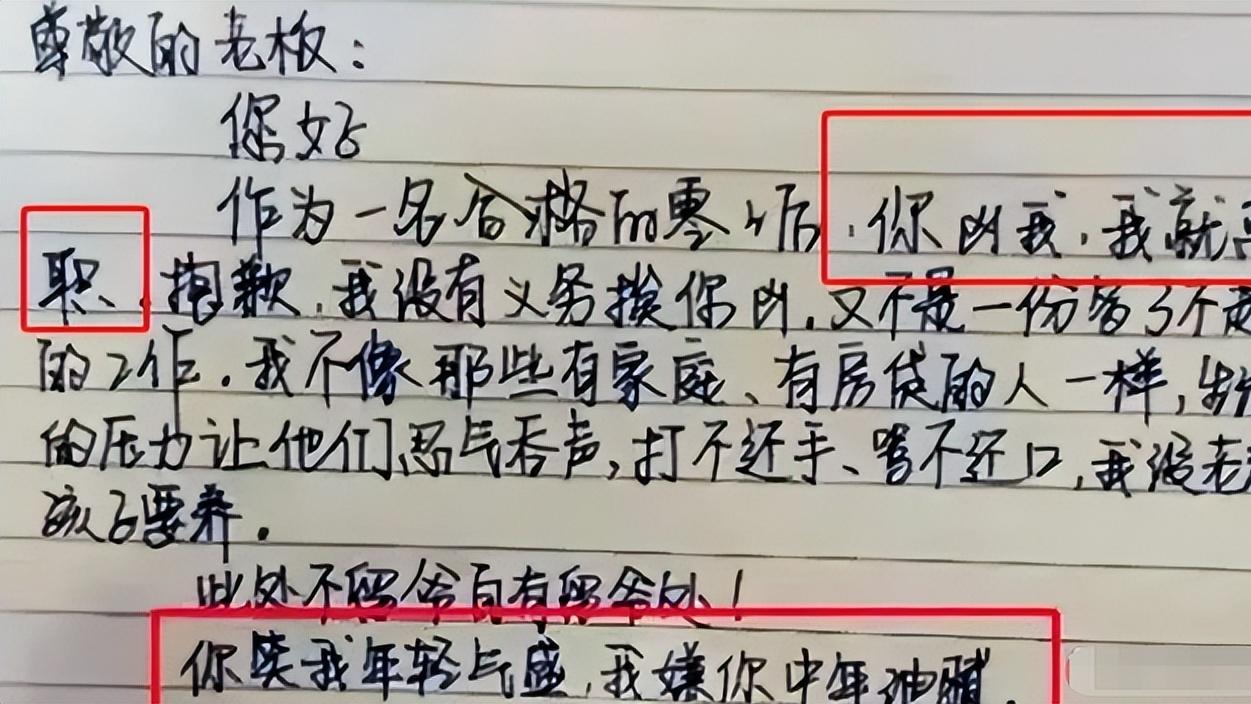 尊敬的老板：
您好
作为一名合格的零零后，你凶我，我就离
职、抱歉，我没有义务挨你凶，又不是一份离了不
的工作。我不像那些有家庭、有房贷的人一样，
的压力让他们忍气吞声，打不还手、骂不还口，我没老
孩子要养。
此处不留爷自有留爷处！
你笑我年轻气盛，我嫌你中年油腻。